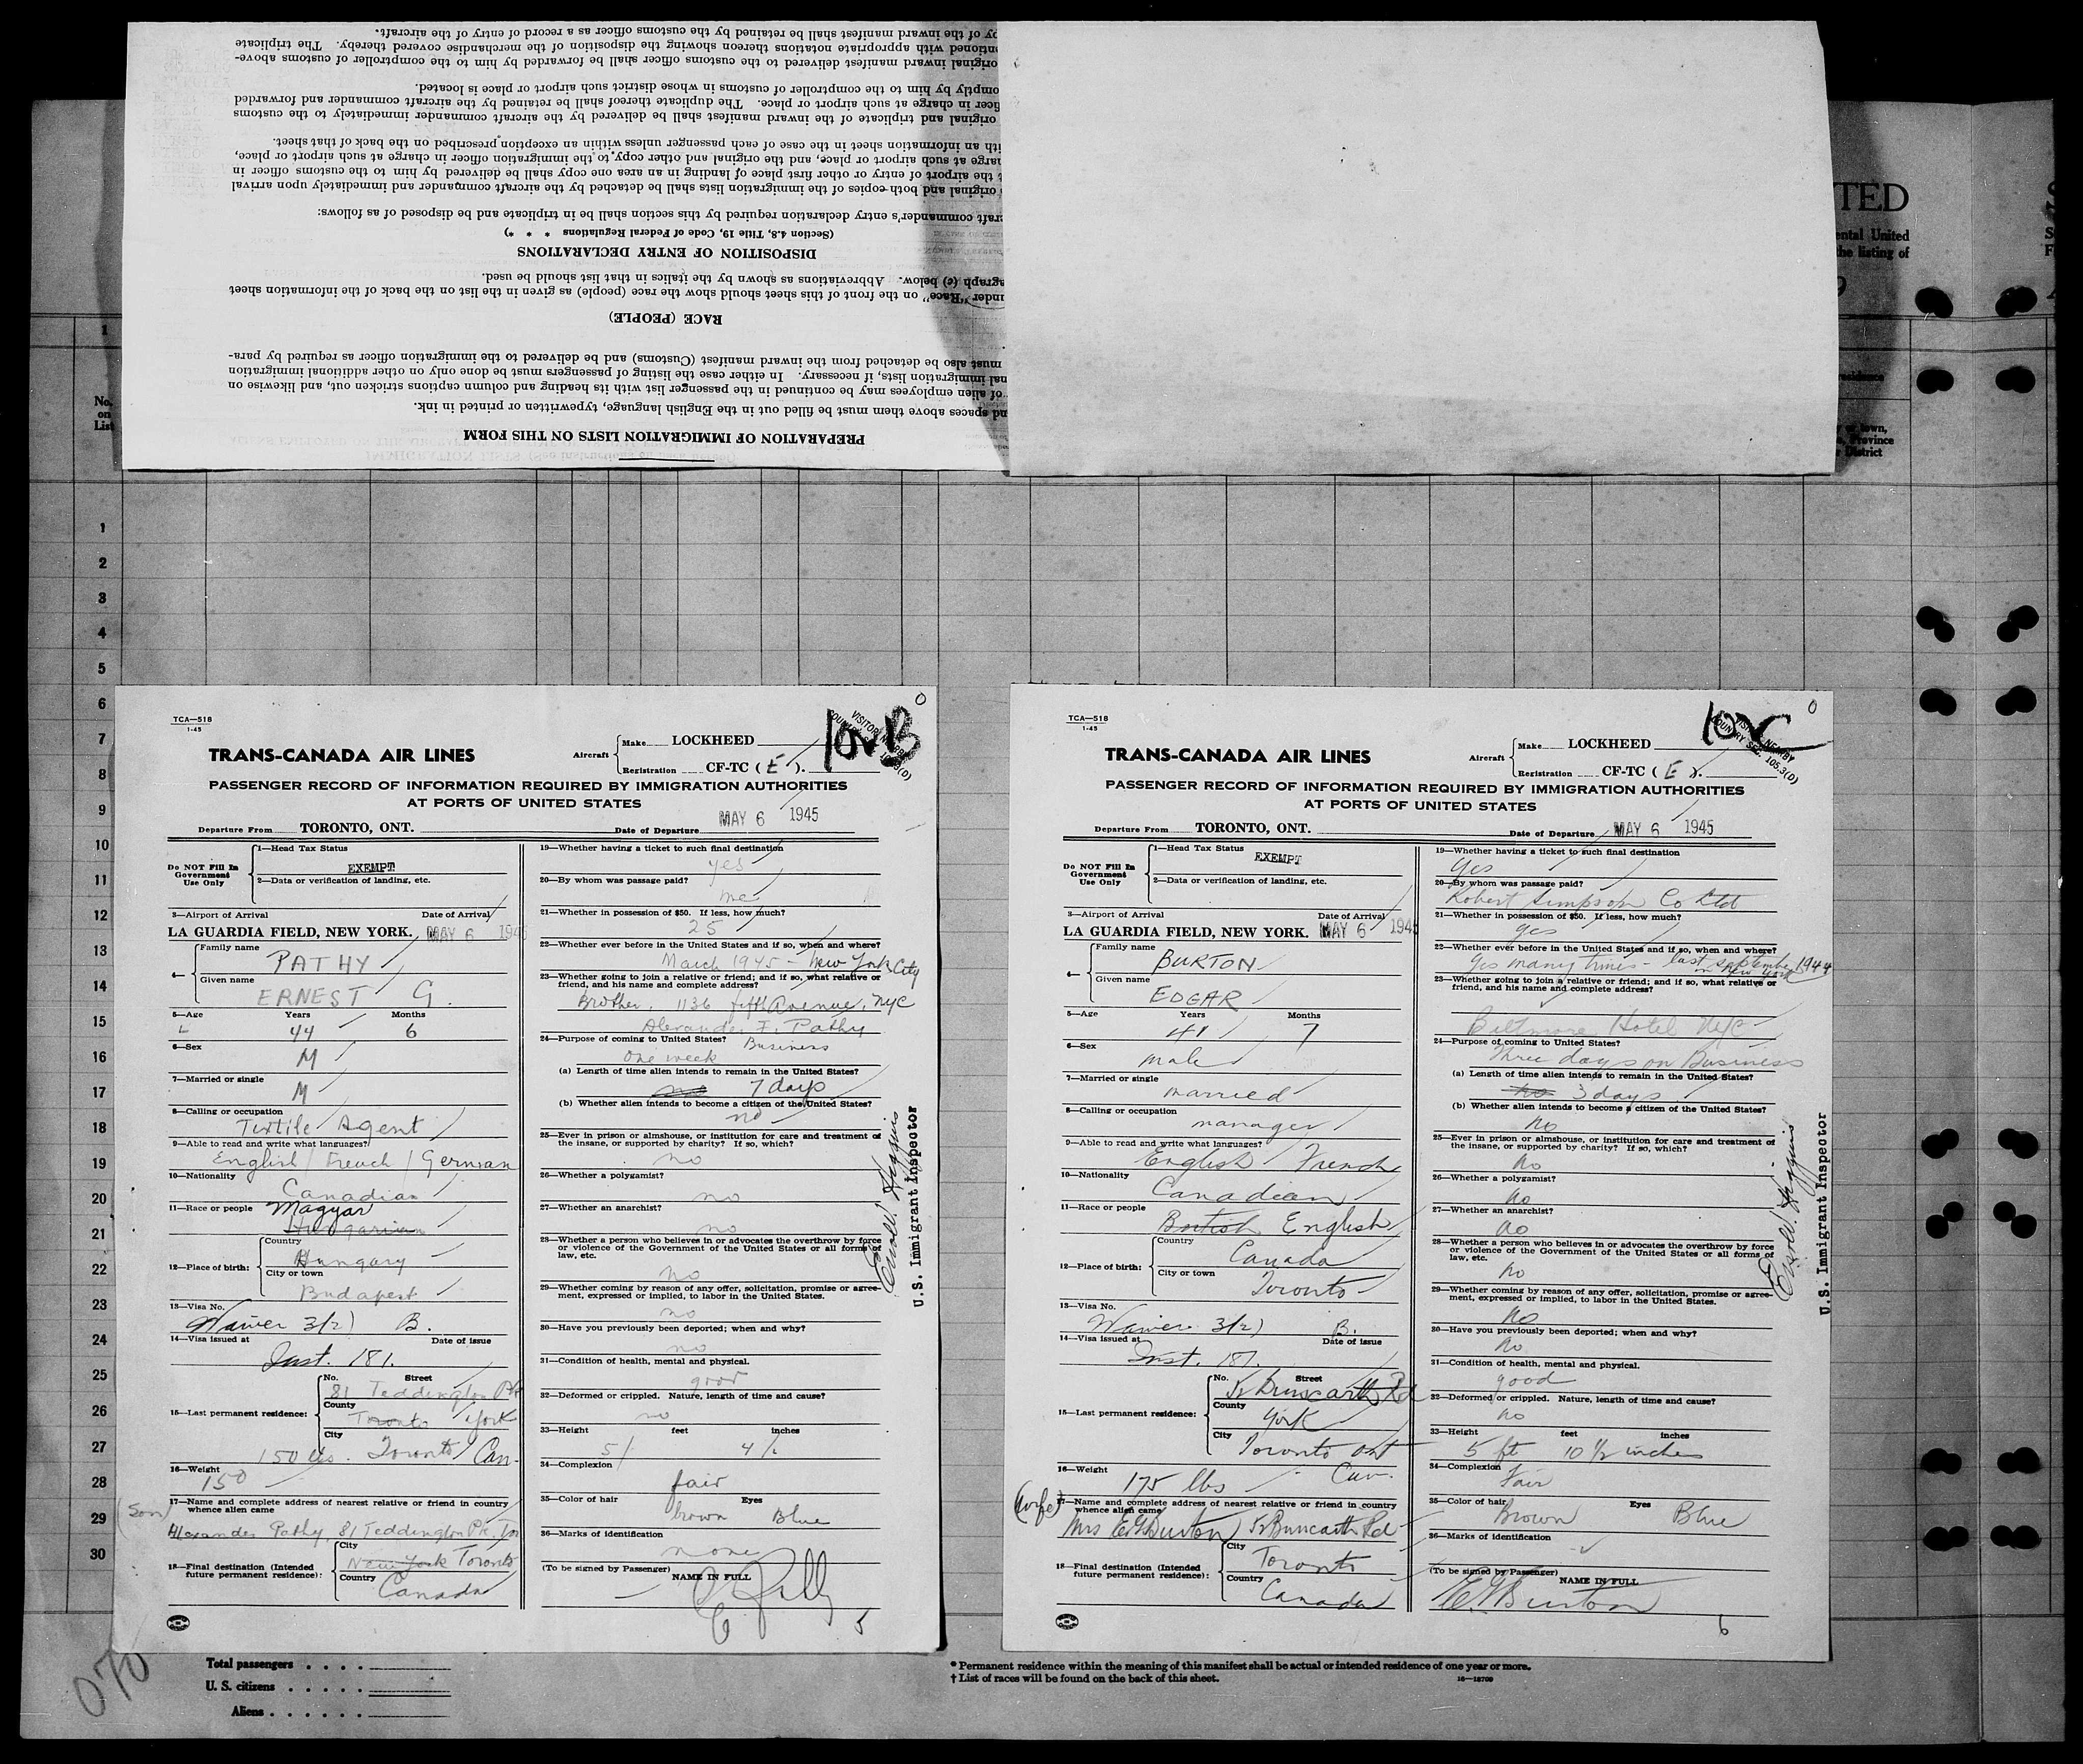 by of the inward manifest shall be retained by the customs officer as a record of entry of the aircraft.
ntioned with appropriate notations thereon showing the disposition of the merchandise covered thereby. The triplicate
original inward manifest delivered to the customs officer shall be forwarded by him to the comptroller of customs above-
omptly by him to the comptroller of customs in whose district such airport or place is located.
ficer in charge at such airport or place. The duplicate thereof shall be retained by the aircraft commander and forwarded
original and triplicate of the inward manifest shall be delivered by the aircraft commander immediately to the customs
ith an information sheet in the case of each passenger unless within an exception prescribed on the back of that sheet.
harge at such airport or place, and the original and other copy to the immigration officer in charge at such airport or place,
t the airport of entry or other first place of landing in an area one copy shall be delivered by him to the customs officer in
original and both copies of the immigration lists shall be detached by the aircraft commander and immediately upon arrival
craft commander's entry declaration required by this section shall be in triplicate and be disposed of as follows:
(Section 4.8, Title 19, Code of Federal Regulations * * *)
DISPOSITION OF ENTRY DECLARATIONS
agraph (c) below. Abbreviations as shown by the italics in that list should be used.
under "Race" on the front of this sheet should show the race (people) as given in the list on the back of the information sheet
RACE (PEOPLE)
must also be detached from the inward manifest (Customs) and be delivered to the immigration officer as required by para-
nal immigration lists, if necessary. In either case the listing of passengers must be done only on other additional immigration
of alien employees may be continued in the passenger list with its heading and column captions stricken out, and likewise on
nd spaces above them must be filled out in the English language, typewritten or printed in ink.
PREPARATION OF IMMIGRATION LISTS ON THIS FORM
TED
ental United
the listing of
9
residence
or town,
Province
District
No.
on
List
1
1
2
3
4
5
6
7
8
9
10
11
12
13
14
15
16
17
18
19
20
21
22
23
24
25
26
27
28
29
30
TCA—518
1-45
0
10 B
VISITOR NEARBY
COUNTRY SEC. 105.3(D)
TRANS-CANADA AIR LINES
Aircraft
Make LOCKHEED
Registration CF-TC ( E ).
PASSENGER RECORD OF INFORMATION REQUIRED BY IMMIGRATION AUTHORITIES
AT PORTS OF UNITED STATES
Departure From TORONTO, ONT.
Date of Departure MAY 6 1945
Do NOT Fill In
Government
Use Only
1—Head Tax Status
EXEMPT
2—Data or verification of landing, etc.
3—Airport of Arrival Date of Arrival
LA GUARDIA FIELD, NEW YORK. MAY 6 1945
4—
Family name
PATHY
Given name
ERNEST G.
5—Age Years Months
44 6
6—Sex
M
7—Married or single
M
8—Calling or occupation
Textile Agent
9—Able to read and write what languages?
English / French / German
10—Nationality
Canadian
11—Race or people Magyar
Hungarian
12—Place of birth:
Country
Hungary
City or town
Budapest
13—Visa No.
Waiver 3(2) B.
14—Visa issued at Date of issue
Inst. 181.
15—Last permanent residence:
No. Street
81 Teddington Pk
County
Toronto York
City
150 lbs. Toronto Can.
16—Weight
150
17—Name and complete address of nearest relative or friend in country
whence alien came
(Son)
Alexander Pathy, 81 Teddington Pk. Tor
18—Final destination (Intended
future permanent residence):
City
New York Toronto
Country
Canada
19—Whether having a ticket to such final destination
yes
20—By whom was passage paid?
me
21—Whether in possession of $50. If less, how much?
25
22—Whether ever before in the United States and if so, when and where?
March 1945 - New York City
23—Whether going to join a relative or friend; and if so, what relative or
friend, and his name and complete address?
Brother. 1136 fifth Avenue, NYC
Alexander F. Pathy
24—Purpose of coming to United States? Business
One week
(a) Length of time alien intends to remain in the United States?
7 days
(b) Whether alien intends to become a citizen of the United States?
no
25—Ever in prison or almshouse, or institution for care and treatment of
the insane, or supported by charity? If so, which?
no
26—Whether a polygamist?
no
27—Whether an anarchist?
no
28—Whether a person who believes in or advocates the overthrow by force
or violence of the Government of the United States or all forms of
law, etc.
no
29—Whether coming by reason of any offer, solicitation, promise or agree-
ment, expressed or implied, to labor in the United States.
no
30—Have you previously been deported; when and why?
no
31—Condition of health, mental and physical.
good
32—Deformed or crippled. Nature, length of time and cause?
no
33—Height feet inches
5 4 1/2
34—Complexion
fair
35—Color of hair Eyes
brown Blue
36—Marks of identification
none
(To be signed by Passenger) NAME IN FULL
5
U.S. Immigrant Inspector
TCA—518
1-45
0
10 C
VISITOR NEARBY
COUNTRY SEC. 105.3(D)
TRANS-CANADA AIR LINES
Aircraft
Make LOCKHEED
Registration CF-TC ( E ).
PASSENGER RECORD OF INFORMATION REQUIRED BY IMMIGRATION AUTHORITIES
AT PORTS OF UNITED STATES
Departure From TORONTO, ONT.
Date of Departure MAY 6 1945
Do NOT Fill In
Government
Use Only
1—Head Tax Status
EXEMPT
2—Data or verification of landing, etc.
3—Airport of Arrival Date of Arrival
LA GUARDIA FIELD, NEW YORK. MAY 6 1945
4—
Family name
BURTON
Given name
EDGAR
5—Age Years Months
41 7
6—Sex
male
7—Married or single
married
8—Calling or occupation
manager
9—Able to read and write what languages?
English French
10—Nationality
Canadian
11—Race or people
British English
12—Place of birth:
Country
Canada
City or town
Toronto
13—Visa No.
Waiver 3(2) B.
14—Visa issued at Date of issue
Inst. 181.
15—Last permanent residence:
No. Street
Rd
County
York
City
Toronto Ont
Can.
16—Weight
175 lbs
(wife)
17—Name and complete address of nearest relative or friend in country
whence alien came
Mrs E G Burton Rd
18—Final destination (Intended
future permanent residence):
City
Toronto
Country
Canada
19—Whether having a ticket to such final destination
Yes
20—By whom was passage paid?
Robert Simpson Co Ltd
21—Whether in possession of $50. If less, how much?
yes
22—Whether ever before in the United States and if so, when and where?
Yes many times - last september 1944
New York
23—Whether going to join a relative or friend; and if so, what relative or
friend, and his name and complete address?
Biltmore Hotel NYC
24—Purpose of coming to United States?
Three days on Business
(a) Length of time alien intends to remain in the United States?
no 3 days
(b) Whether alien intends to become a citizen of the United States?
No
25—Ever in prison or almshouse, or institution for care and treatment of
the insane, or supported by charity? If so, which?
no
26—Whether a polygamist?
no
27—Whether an anarchist?
no
28—Whether a person who believes in or advocates the overthrow by force
or violence of the Government of the United States or all forms of
law, etc.
no
29—Whether coming by reason of any offer, solicitation, promise or agree-
ment, expressed or implied, to labor in the United States.
no
30—Have you previously been deported; when and why?
no
31—Condition of health, mental and physical.
good
32—Deformed or crippled. Nature, length of time and cause?
no
33—Height feet inches
5 ft 10 1/2 inches
34—Complexion
Fair
35—Color of hair Eyes
Brown Blue
36—Marks of identification
(To be signed by Passenger) NAME IN FULL
E G Burton
6
U.S. Immigrant Inspector
070
Total passengers . . . .
U. S. citizens . . . . .
Aliens . . . . . .
* Permanent residence within the meaning of this manifest shall be actual or intended residence of one year or more.
† List of races will be found on the back of this sheet.
16—18709